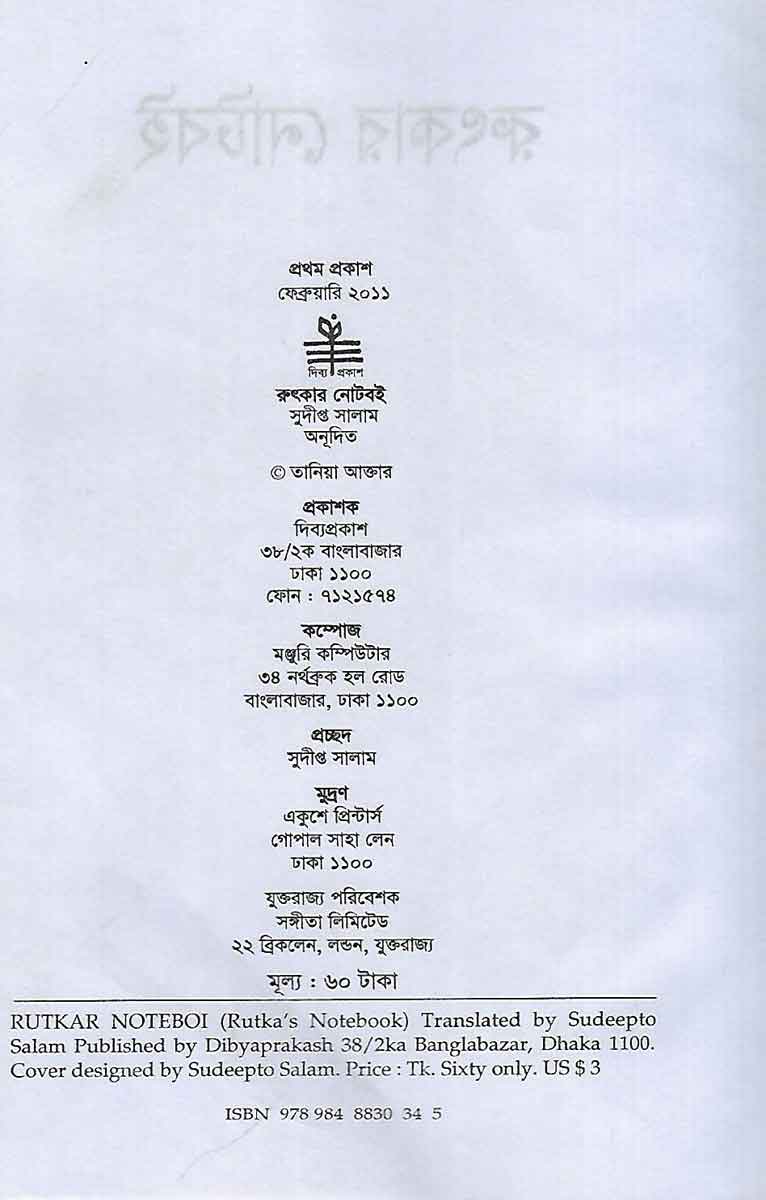 রুৎকার নোটবই
প্রথম প্রকাশ
ফেব্রুয়ারি ২০১১
দিব্য প্রকাশ
রুৎকার নোটবই
সুদীপ্ত সালাম
অনূদিত
© তানিয়া আক্তার
প্রকাশক
দিব্যপ্রকাশ
৩৮/২ক বাংলাবাজার
ঢাকা ১১০০
ফোন : ৭১২১৫৭৪
কম্পোজ
মঞ্জুরি কম্পিউটার
৩৪ নর্থব্রুক হল রোড
বাংলাবাজার, ঢাকা ১১০০
প্রচ্ছদ
সুদীপ্ত সালাম
মুদ্রণ
একুশে প্রিন্টার্স
গোপাল সাহা লেন
ঢাকা ১১০০
যুক্তরাজ্য পরিবেশক
সঙ্গীতা লিমিটেড
২২ ব্রিকলেন, লন্ডন, যুক্তরাজ্য
মূল্য : ৬০ টাকা
RUTKAR NOTEBOI (Rutka's Notebook) Translated by Sudeepto
Salam Published by Dibyaprakash 38/2ka Banglabazar, Dhaka 1100.
Cover designed by Sudeepto Salam. Price : Tk. Sixty only. US $ 3
ISBN 978 984 8830 34 5